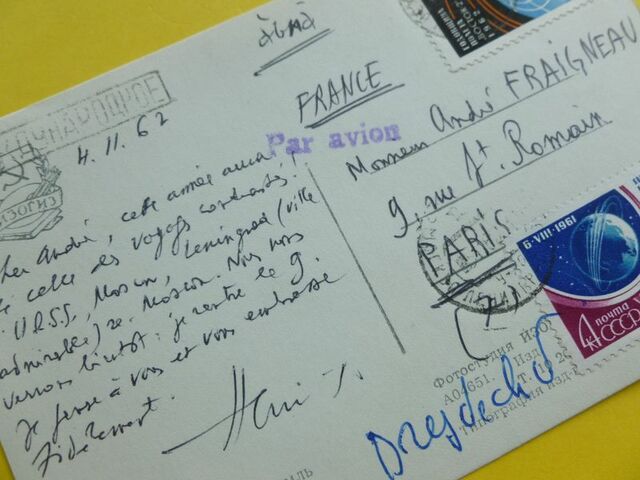 МЕЖДУНАРОДНОЕ
ИЗОГИЗ
4.11.62
Cher André, cette année aura
été celle des voyages contrastés!
U.R.S.S, Moscou, Leningrad (ville
admirable) re-Moscou. Nous nous
verrons bientôt: je rentre le 9.
Je pense à vous et vous embrasse
Fidèlement.
Henri
АВИА
FRANCE
Par avion
Monsieur André FRAIGNEAU
9, rue St. Romain
PARIS
(7)
1962
6·VIII·1961
4К
ПОЧТА
СССР
Фотостудия Изог
А04651.
Изд.
26
Типография изд-в